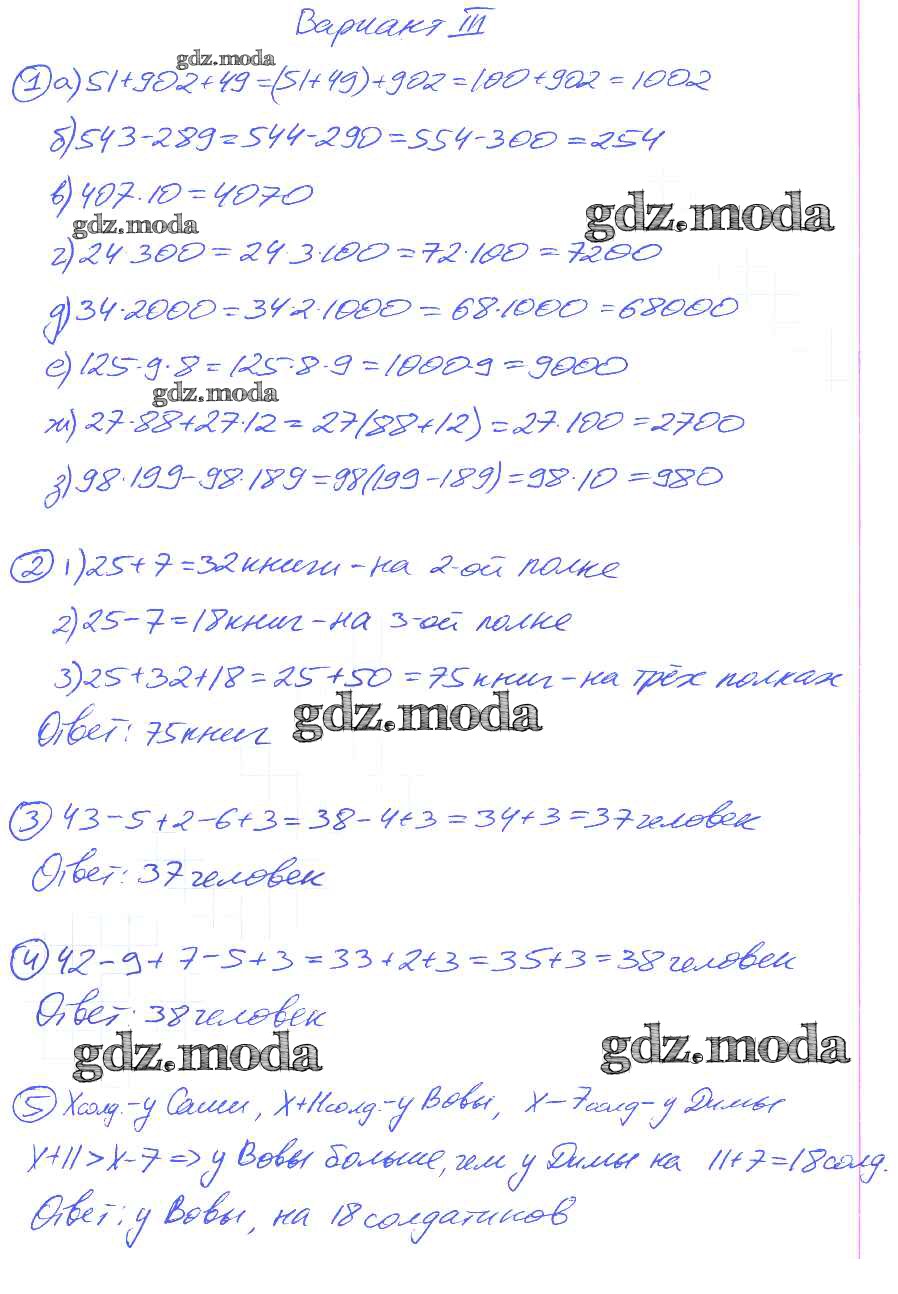 Вариант III
gdz.moda
① а) 51+902+49=(51+49)+902=100+902=1002
б) 543-289=544-290=554-300=254
в) 407·10=4070
gdz.moda
gdz.moda
г) 24 300=24·3·100=72·100=7200
д) 34·2000=34·2·1000=68·1000=68000
е) 125·9·8=125·8·9=1000·9=9000
gdz.moda
ж) 27·88+27·12=27(88+12)=27·100=2700
з) 98·199-98·189=98(199-189)=98·10=980
② 1) 25+7=32 книги - на 2-ой полке
2) 25-7=18 книг - на 3-ой полке
3) 25+32+18=25+50=75 книг - на трёх полках
Ответ: 75 книг
gdz.moda
③ 43-5+2-6+3=38-4+3=34+3=37 человек
Ответ: 37 человек
④ 42-9+7-5+3=33+2+3=35+3=38 человек
Ответ: 38 человек
gdz.moda
gdz.moda
⑤ X солд.-у Саши, X+11 солд.-у Вовы, X-7 солд-у Димы
X+11>X-7=>у Вовы больше, чем у Димы на 11+7=18 солд.
Ответ: у Вовы, на 18 солдатиков